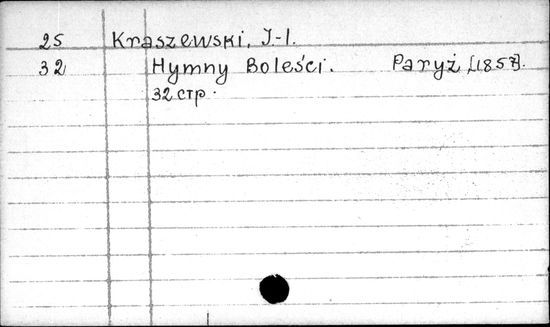 25 Kraszewski, J-I.
32 Hymny Boleści. Paryż [1857].
32 стр.